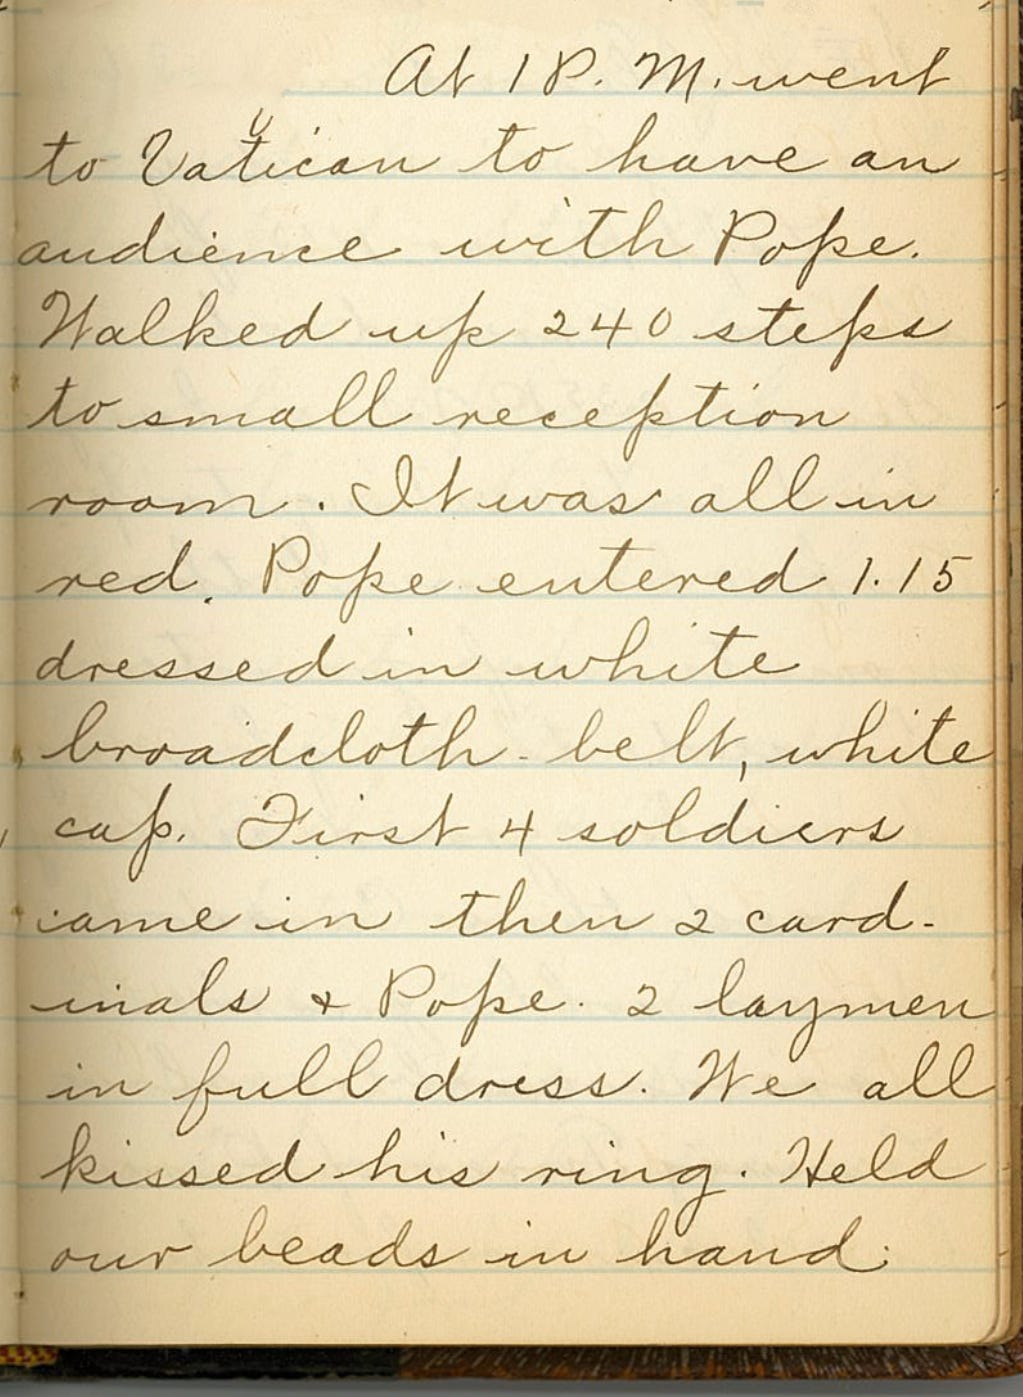 At 1 P. M. went
to Vatican to have an
audience with Pope.
Walked up 240 steps
to small reception
room. It was all in
red. Pope entered 1.15
dressed in white
broadcloth - belt, white
cap. First 4 soldiers
came in then 2 card-
inals & Pope. 2 laymen
in full dress. We all
kissed his ring. Held
our beads in hand.